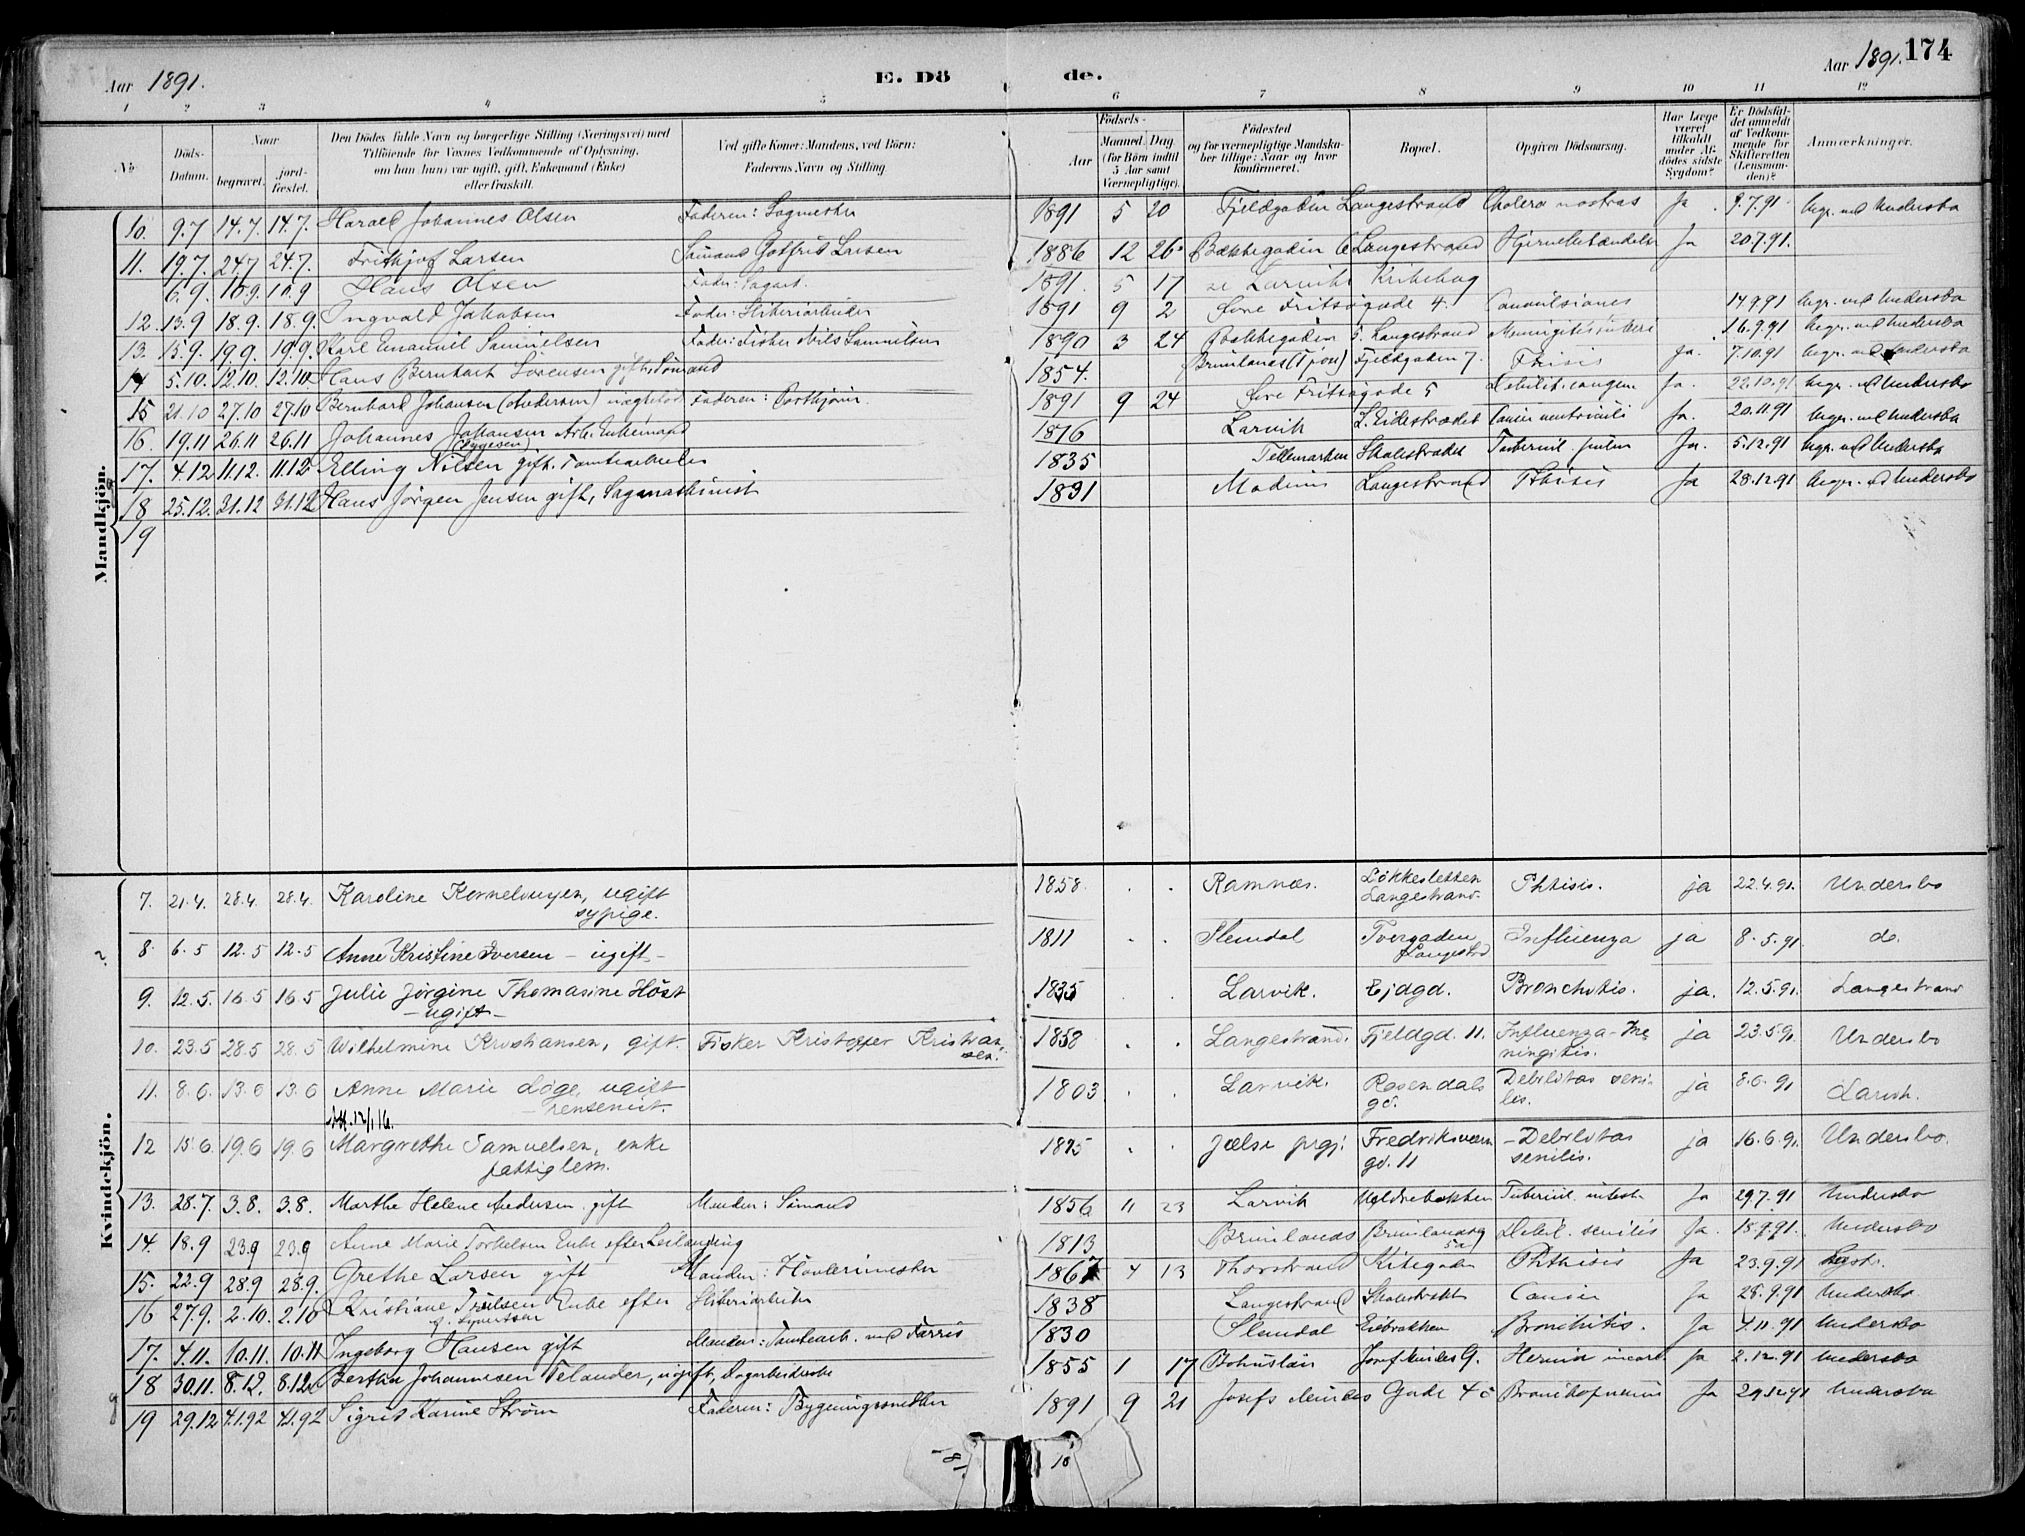 Aar 1891.
E. Dö de.
Aar 1891. 174
1 2 3 4 5 6 7 8 9 10 11 12
No
Döds-Datum.
Naar
begravet.
jord-fæstet.
Den Dödes fulde Navn og borgerlige Stilling (Næringsvei) med
Tilföiende for Voxnes Vedkommende af Oplysning,
om han (hun) var ugift, gift, Enkemand (Enke)
eller fraskilt.
Ved gifte Koner: Mandens, ved Börn:
Faderens Navn og Stilling.
Födsels-
Aar
Maaned Dag
(for Börn indtil
5 Aar samt
Værnepligtige).
Födested
og for værnepligtige Mandska-
ber tillige: Naar og hvor
konfirmeret.
Bopæl.
Opgiven Dödsaarsag.
Har Læge
været
tilkaldt
under Af-
dödes sidste
Sygdom?
Er Dödsfal-
det anmeldt
af Vedkom-
mende for
Skifteretten
(Lensman-
den)?
Anmærkninger.
Mandkjön.
10. 9.7 14.7. 14.7. Harald Johannes Olsen Faderen: Sagmester 1891 5 20 Fjeldgaden Langestrand Cholera nostras Ja 9.7.91 begr. ved Undersbo
11. 19.7. 24.7 24.7. Fritkjof Larsen Sömand Gotfrid Larsen 1886 12 26. Bækkegaden 6 Langestrand Hjernebetændelse Ja 20.7.91.
6.9. 10.9. 10.9 Hans Olsen Fader: Sagarb. 1891. 5 17 Larvik
12. 13.9 18.9. 18.9. Ingvald Jakobsen Fader: Stöberiarbeider 1891 9 2 Övre Fritsögade 4. Convulsiones 14.9.91 begr. ved Undersbo
13. 15.9. 19.9. 19.9. Karl Emanuel Samuelsen Fader: Fisker Nils Samuelsen 1890 3 24 Bækkegaden 5. Langestrand 16.9.91 begr. ved Undersbo
14 5.10. 12.10. 12.10. Hans Bernhart Sörensen gift, Sömand 1854. Brunlanes (Tjön) Fjeldgaden 7. Ftisis Ja. 7.10.91 begr. ved Undersbo
15 21.10 27.10 27.10 Bernhard Johansen (Andersen) uægtefød Faderen: 1891 9 24 Övre Fritsögade 5 Debilit. congen Ja. 22.10.91. begr. ved Undersbo
16. 19.11 26.11 26.11 Johannes Johansen Arb. Enkemand 1816 Larvik L. Eikestrædet Cancer ventriculi Ja. 20.11.91 begr. ved Undersbo
17. 4.12 11.12. 11.12 Elling Nilsen (Tygesen) gift. Tomtearbeider 1835 Tellemarken Skolestrædet Tubercul. pulm Ja. 5.12.91 begr. ved Undersbo
18 25.12. 31.12 31.12 Hans Jörgen Jensen gift, Sagmaskinist 1831 Modum Langestrand Fthisis Ja 28.12.91 begr. ved Undersbo
19
Kvindekjön.
7. 21.4. 28.4. 28.4. Karoline Korneliusen, ugift
sypige. 1858. . . Ramnæs. Lökkesletten
Langestrand. Phtisis. ja 22.4.91. Undersbo
8. 6.5 12.5 12.5 Anne Kristine Iversen - ugift - 1811 . . Slemdal Tvergaden
Langestrd Influenza ja 8.5.91. do.
9. 12.5. 16.5 16.5 Julie Jörgine Thomasine Höst
- ugift - 1835 . . Larvik. Ejdgd. Bronchitis. ja. 12.5.91. Langestrand
10. 23.5 28.5 28.5 Wilhelmine Kristiansen, gift. Fisker Kristoffer Kristian-
sen. 1858 . . Langestrand. Fjeldgd. 11. Influenza-Me-
ningitis. ja 23.5.91 Undersbo
11. 8.6. 13.6 13.6 Anne Marie Löge, ugift 1803 . . Larvik. Rosendals
gd. Debilitas seni-
lis. ja 8.6.91 Larvik.
12 15.6. 19.6 19.6 Margrethe Samuelsen, enke
fattiglem. 1825 . . Jælse prgj. Fredriksværn
gd. 11 - Debilitas
senilis. ja 16.6.91. Undersbo.
13. 28.7. 3.8. 3.8. Marthe Helene Andersen gift Manden: Sömand 1856 11 23 Larvik Tubercul. intest. Ja 29.7.91 Undersbo
14. 18.9 23.9 23.9 Anne Marie Torkelsen Enke efter Leilænding 1813 Brunlanes Debil. senilis Ja. 18.9.91. Undersbo
15. 22.9 28.9 28.9. Grethe Larsen gift Manden: Hövlerimester 1867 4 13 Thorstrand Kirkegaden Phthisis Ja 23.9.91
16 27.9. 2.10. 2.10 Kristiane Enke efter Stöberiarbeider 1838 Langestrand Skolestrædet Cancer Ja 28.9.91 Undersbo
17. 4.11. 10.11. 10.11 Ingeborg Hansen gift Manden: Tomtearb. ved Farris 1830 Slemdal Bronchitis. Ja 4.11.91 Undersbo
18 30.11. 8.12. 8.12. Berthe Johannesen Telander, ugift, Dagarbeiderske 1855 1 17 Bohuslän Hernia incarc. Ja 2.12.91 Undersbo
19 29.12 4.1.92 4.1.92 Sigrid Karine Ström Faderen: Bygningssnedker 1891 9 21 Josefs Gade 4 Ja 29.12.91 Undersbo
10